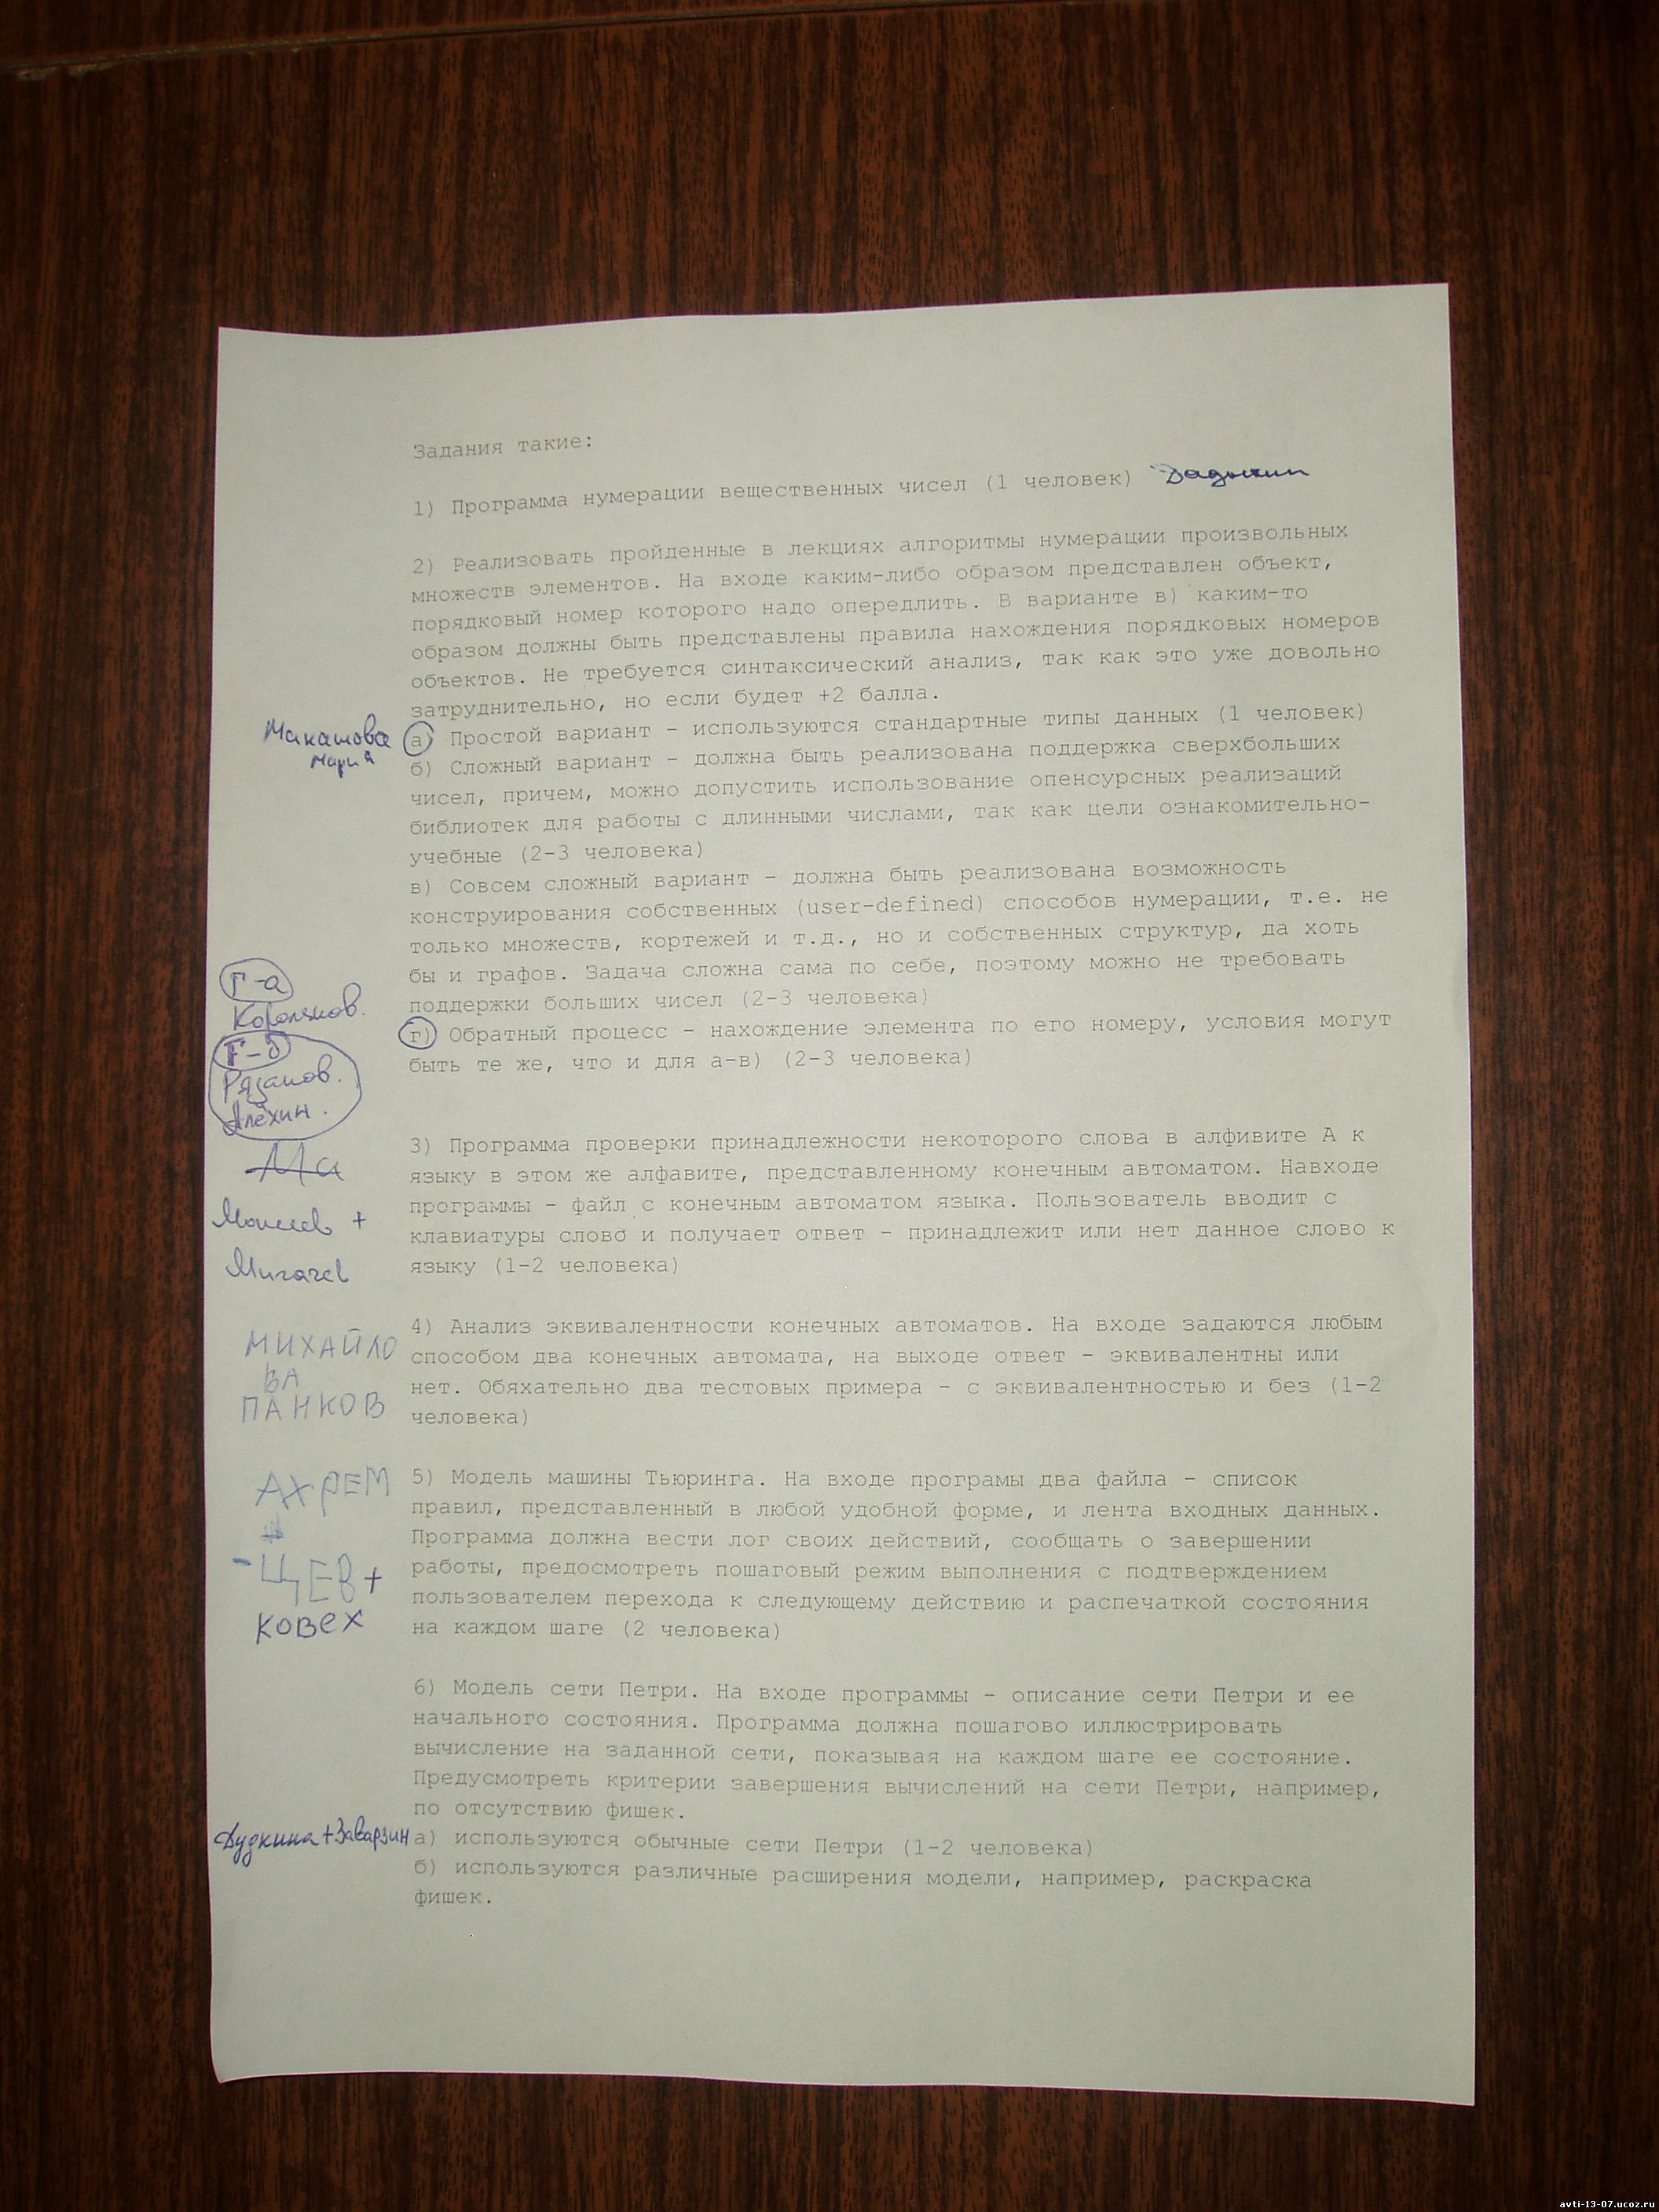 Задания такие:
1) Программа нумерации вещественных чисел (1 человек)
2) Реализовать пройденные в лекциях алгоритмы нумерации произвольных
множеств элементов. На входе каким-либо образом представлен объект,
порядковый номер которого надо опередлить. В варианте в) каким-то
образом должны быть представлены правила нахождения порядковых номеров
объектов. Не требуется синтаксический анализ, так как это уже довольно
затруднительно, но если будет +2 балла.
Макашова
Мария
а) Простой вариант - используются стандартные типы данных (1 человек)
б) Сложный вариант - должна быть реализована поддержка сверхбольших
чисел, причем, можно допустить использование опенсурсных реализаций
библиотек для работы с длинными числами, так как цели ознакомительно-
учебные (2-3 человека)
в) Совсем сложный вариант - должна быть реализована возможность
конструирования собственных (user-defined) способов нумерации, т.е. не
только множеств, кортежей и т.д., но и собственных структур, да хоть
бы и графов. Задача сложна сама по себе, поэтому можно не требовать
поддержки больших чисел (2-3 человека)
Г-а
Г-б
Рязанов.
Алёхин.
г) Обратный процесс - нахождение элемента по его номеру, условия могут
быть те же, что и для а-в) (2-3 человека)
Ма
Моисеев +
Мигачев
3) Программа проверки принадлежности некоторого слова в алфивите А к
языку в этом же алфавите, представленному конечным автоматом. Навходе
программы - файл с конечным автоматом языка. Пользователь вводит с
клавиатуры слово и получает ответ - принадлежит или нет данное слово к
языку (1-2 человека)
МИХАЙЛО
ВА
ПАНКОВ
4) Анализ эквивалентности конечных автоматов. На входе задаются любым
способом два конечных автомата, на выходе ответ - эквивалентны или
нет. Обяхательно два тестовых примера - с эквивалентностью и без (1-2
человека)
АХРЕМ
-ЦЕВ +
КОВЕХ
5) Модель машины Тьюринга. На входе програмы два файла - список
правил, представленный в любой удобной форме, и лента входных данных.
Программа должна вести лог своих действий, сообщать о завершении
работы, предосмотреть пошаговый режим выполнения с подтверждением
пользователем перехода к следующему действию и распечаткой состояния
на каждом шаге (2 человека)
6) Модель сети Петри. На входе программы - описание сети Петри и ее
начального состояния. Программа должна пошагово иллюстрировать
вычисление на заданной сети, показывая на каждом шаге ее состояние.
Предусмотреть критерии завершения вычислений на сети Петри, например,
по отсутствию фишек.
Дудкина + Заварзин
а) используются обычные сети Петри (1-2 человека)
б) используются различные расширения модели, например, раскраска
фишек.
avti-13-07.ucoz.ru